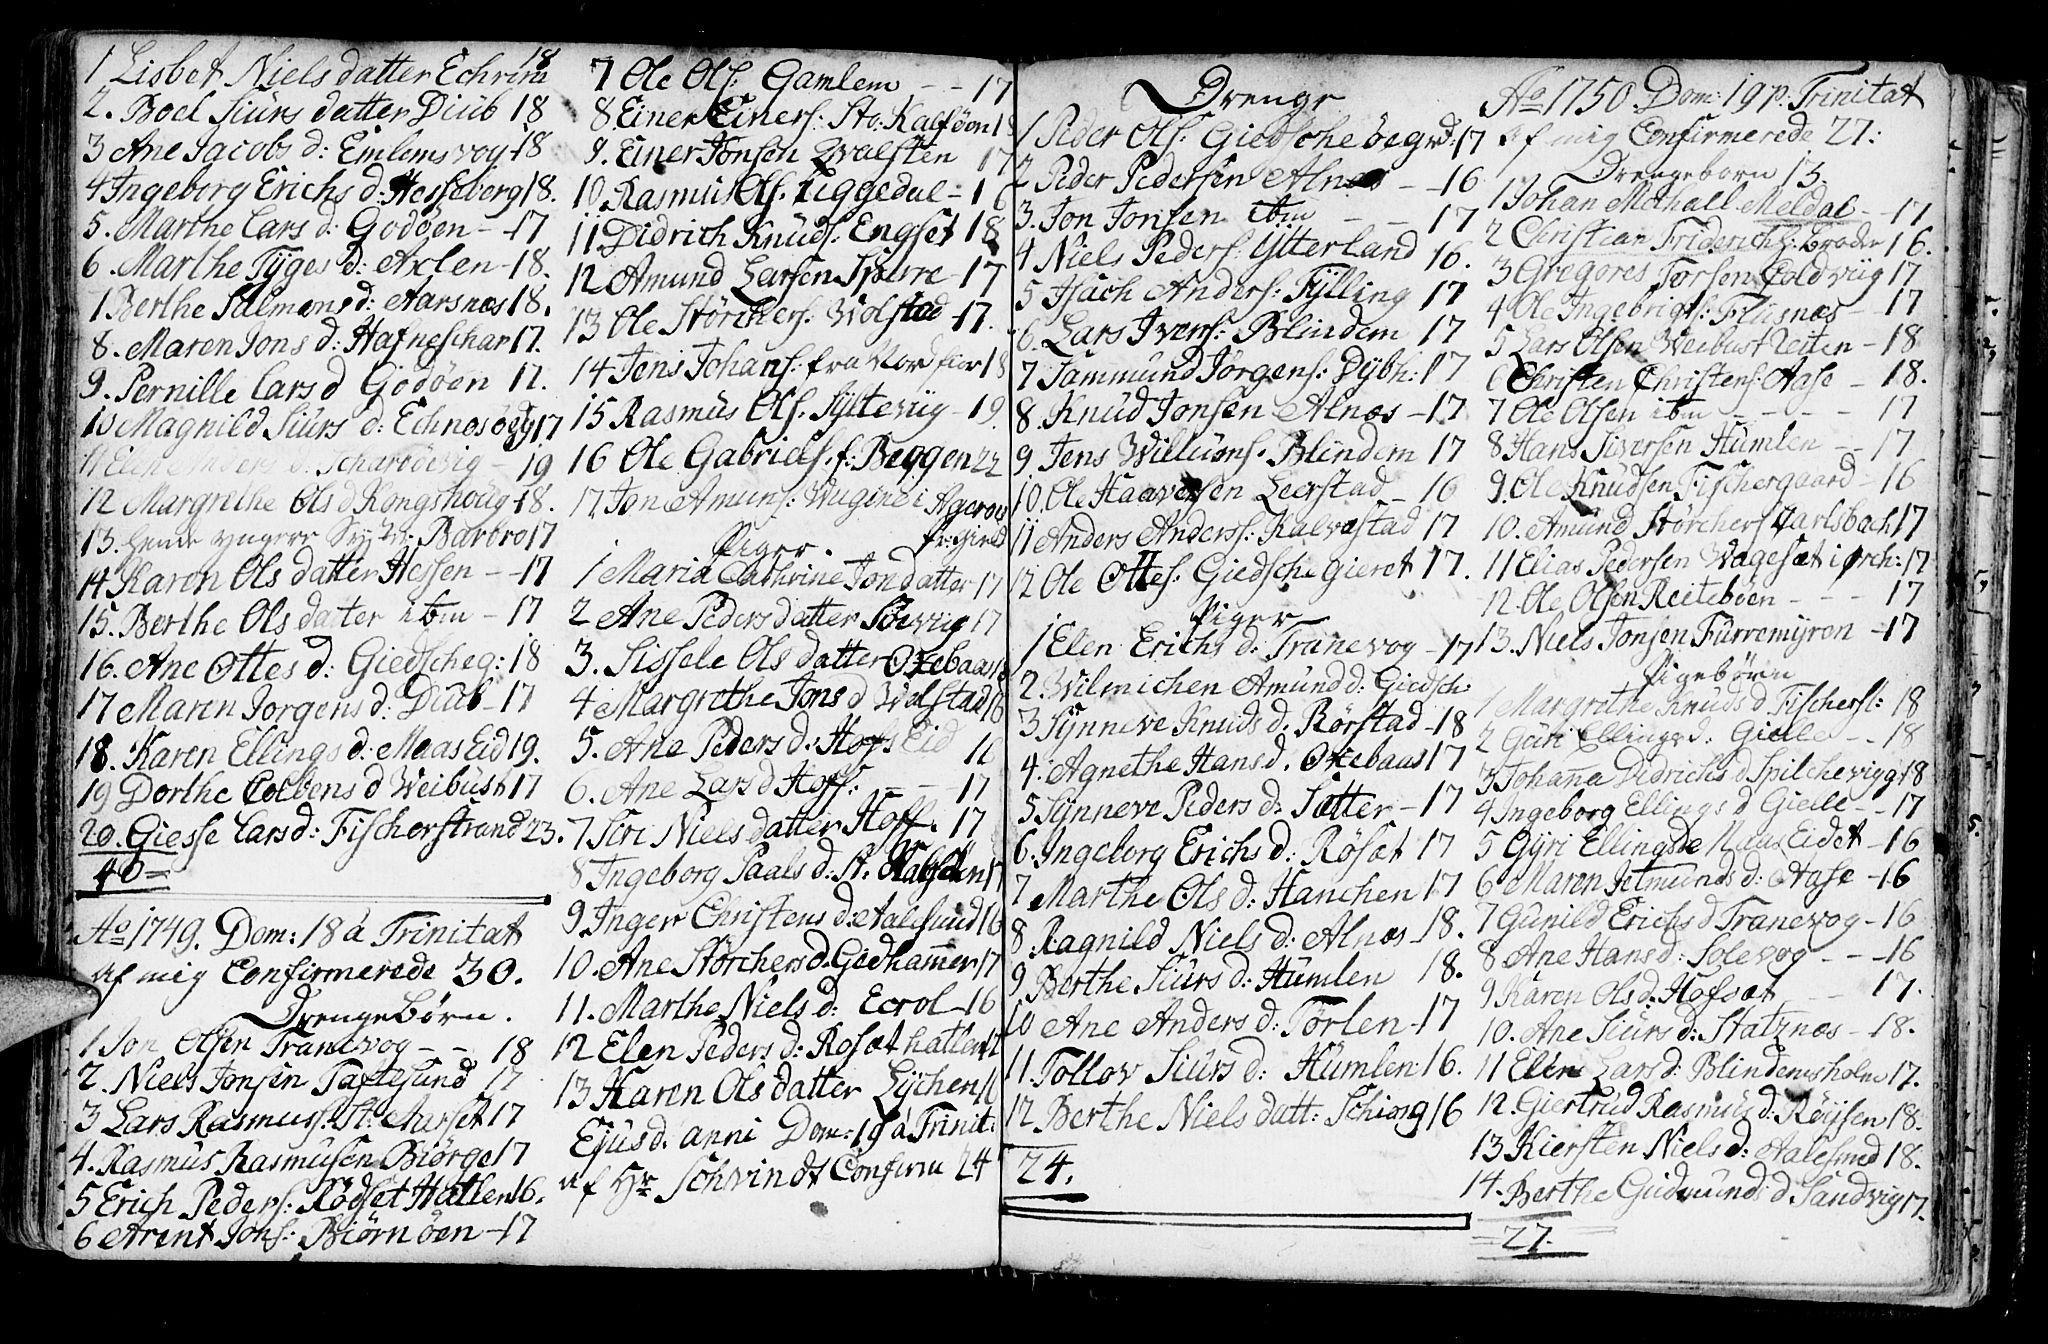 1 Lisbet Niels datter Echrem 18
2. Boel Siurs datter Diub 18
3 Ane Jacobs d: Emlemsvog 18
4 Ingeborg Erichs d: Hesseberg 18.
5. Marthe Lars d: Godøen - 17
6. Marthe Tyges d: Axlen - 18.
Berthe Salmons d: Aarsnes 18.
8. Maren Jons d: Hafneschar 17.
9. Pernille Lars d Godøen 17.
10 Magnild Siurs d: Echnes 17
11 Elen Anders d. - 19
12 Margrethe Ols d Kongshoug 18.
13. hende yngere Syst: Barbro 17
14 Karen Ols datter Hessen - 17
15. Berthe Ols datter ibm - 17
16. Ane Ottes d: Giedscheg: 18
17 Maren Jørgens d: Diub 17
18. Karen Ellings d: Maas Eid 19.
19 Dorthe Colbens d Weibust 17
20. Giesse Lars d: Fischerstrand 23.
40
Ao 1749. Dom: 18 à Trinitat
af mig Confirmerede 30.
Drengebørn.
1 Jon Olsen Tranevog - - 18
2. Niels Jonsen Taftesund 17
3 Lars Rasmuss: St: Aarset 17
4. Rasmus Rasmusen Biørge 17
5 Erich Peders: Rødset Hatlen 16.
6 Arent Jons: Biørnøen - 17
7 Ole Ols: Gamlem - - 17
8. Einer Einers: Sto: Kalføen
9. Einer Jonsen Qvalsten 17
10. Rasmus Ols. Liggedal - 16
11 Didrich Knuds: Engset 18
12 Amund Larsen Sperre 17
13 Ole Størchers: Wolstad 17.
14 Jens Johans: fra Nordfior 18
15 Rasmus Ols. Syltevig - 19.
16 Ole Gabriels. f: Beggen 22
17 Jon Amuns: i Agerøe
Pr: Gield
Piger.
1 Maria Cathrine Jondatter 17
2 Ane Peders datter 17
3. Sissele Ols datter Oxebaas
4 Margrethe Jons d Wolstad 16
5. Ane Peders d: Hofs Eid 16
6. Ane Lars d Hoff: - - 17
7 Siri Niels datter Hoff. 17
8 Ingeborg Paals d: St. Kalføen 17
9. Inger Christens d: Aalesund 16
10. Ane Størchers d. Gedhammer 17
11. Marthe Niels d: Ecrol 16
12 Elen Peders d: Rosæt hatlen
13 Karen Ols datter Lychen 16
Ejusd. anni Dom: 19 à Trinit:
af Hr Schvindt Confirm 24
Drenge
1 Peder Ols. Giedsche øegrd: 17
2 Peder Pedersen Alnes - 16
3. Jon Jonsen ibm - - 17
4 Niels Peders: Ytterland 16.
5 Isach Anders: Tylling 17
6. Lars Ivers: Blindem 17
7 Tammund Jørgens: Dybh: 17
8. Knud Jonsen Alnes - 17
9 Jens Willums. Blindem 17
10. Ole Haaversen Leerstad - 16
11 Anders Anderss: Kalvestad 17
12 Ole Ottes. Giedsche gieret 17.
Piger
1 Elen Erichs d: Tranevog - 17
2. Wilmichen Amund d: Giedsch
3 Synneve Knuds d: Rørstad - 18
4. Agnethe Hans d. Oxebaas 17
5 Synneve Peders d: Sætter - 17
6. Ingeborg Erichs d: Røsæt 17
7 Marthe Ols d: Hanchen 17
8. Ragnild Niels d: Alnes - 18.
9 Berthe Siurs d: Humlen 18.
10 Ane Anders d: Tørlen - 17
11. Tollov Siurs d: Humlen 16.
12 Berthe Niels datt: Schiong 16
24.
Ao 1750. Dom: 19 p. Trinitat
af mig Confirmerede 27:
Drengebørn 13.
1 Johan Mothall Meldal - 17
2 Christian Friderich : brodr 16.
3 Gregores Torsen Coldviig 17
4 Ole Ingebrigts: Flisnes - 17
5 Lars Olsen Weibust Reiten - 18
6 Christen Christens: Aase - 18.
7 Ole Olsen ibm - - - - 17
8 Hans Siversen Humlen - 17
9. Ole Knudsen Fischergaard - 16
10. Amund Størchers Carlsbach 17
11 Elias Pedersen Wagesæt i Ørch: 17
12. Ole Olsen Reitebøen - - - 17
13. Niels Jonsen Furremyren - 17
Pigebørn
1 Margrethe Knuds d Fischerst: 18
2 Guri Ellings d: Gielle - - 18
3 Johanna Didrichs d Spilchevigg 18
4 Ingeborg Ellings d Gielle - - 17
5 Gyri Ellingsd Maas Eidet - 16
6. Maren Jetmunds d: Aase - 16
7 Gunild Erichs d Tranevog - 16
8 Ane Hans d: Solevog - - 16
9 Karen Ols d: Hofsæt - - 17.
10. Ane Siurs d: Statznes - 18.
11 Elen Lars d: Blindemsholm 17.
12. Giertrud Rasmus d: Røysen 18.
13 Kiersten Niels d: Aalesund 18.
14. Berthe Gudmunds d. Sandvig 17.
27.